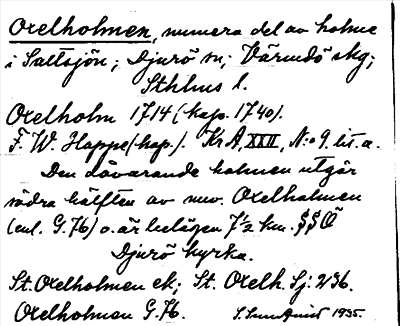 Oxelholmen, numera del av holme
i Saltsjön; Djurö sn; Värmdö skg;
Sthlms l.
Oxelholm 1714 (kop. 1740).
F. W. Happe (kop.). Kr A, XXII, N:o 9 lit. a.
Den dåvarande holmen utgör
södra hälften av nuv. Oxelholmen
(enl. G.76) o. är belägen 7½ km. SSÖ
Djurö kyrka.
St. Oxelholmen ek; St. Oxelh. Sj: 236.
Oxelholmen G.76. 1935.